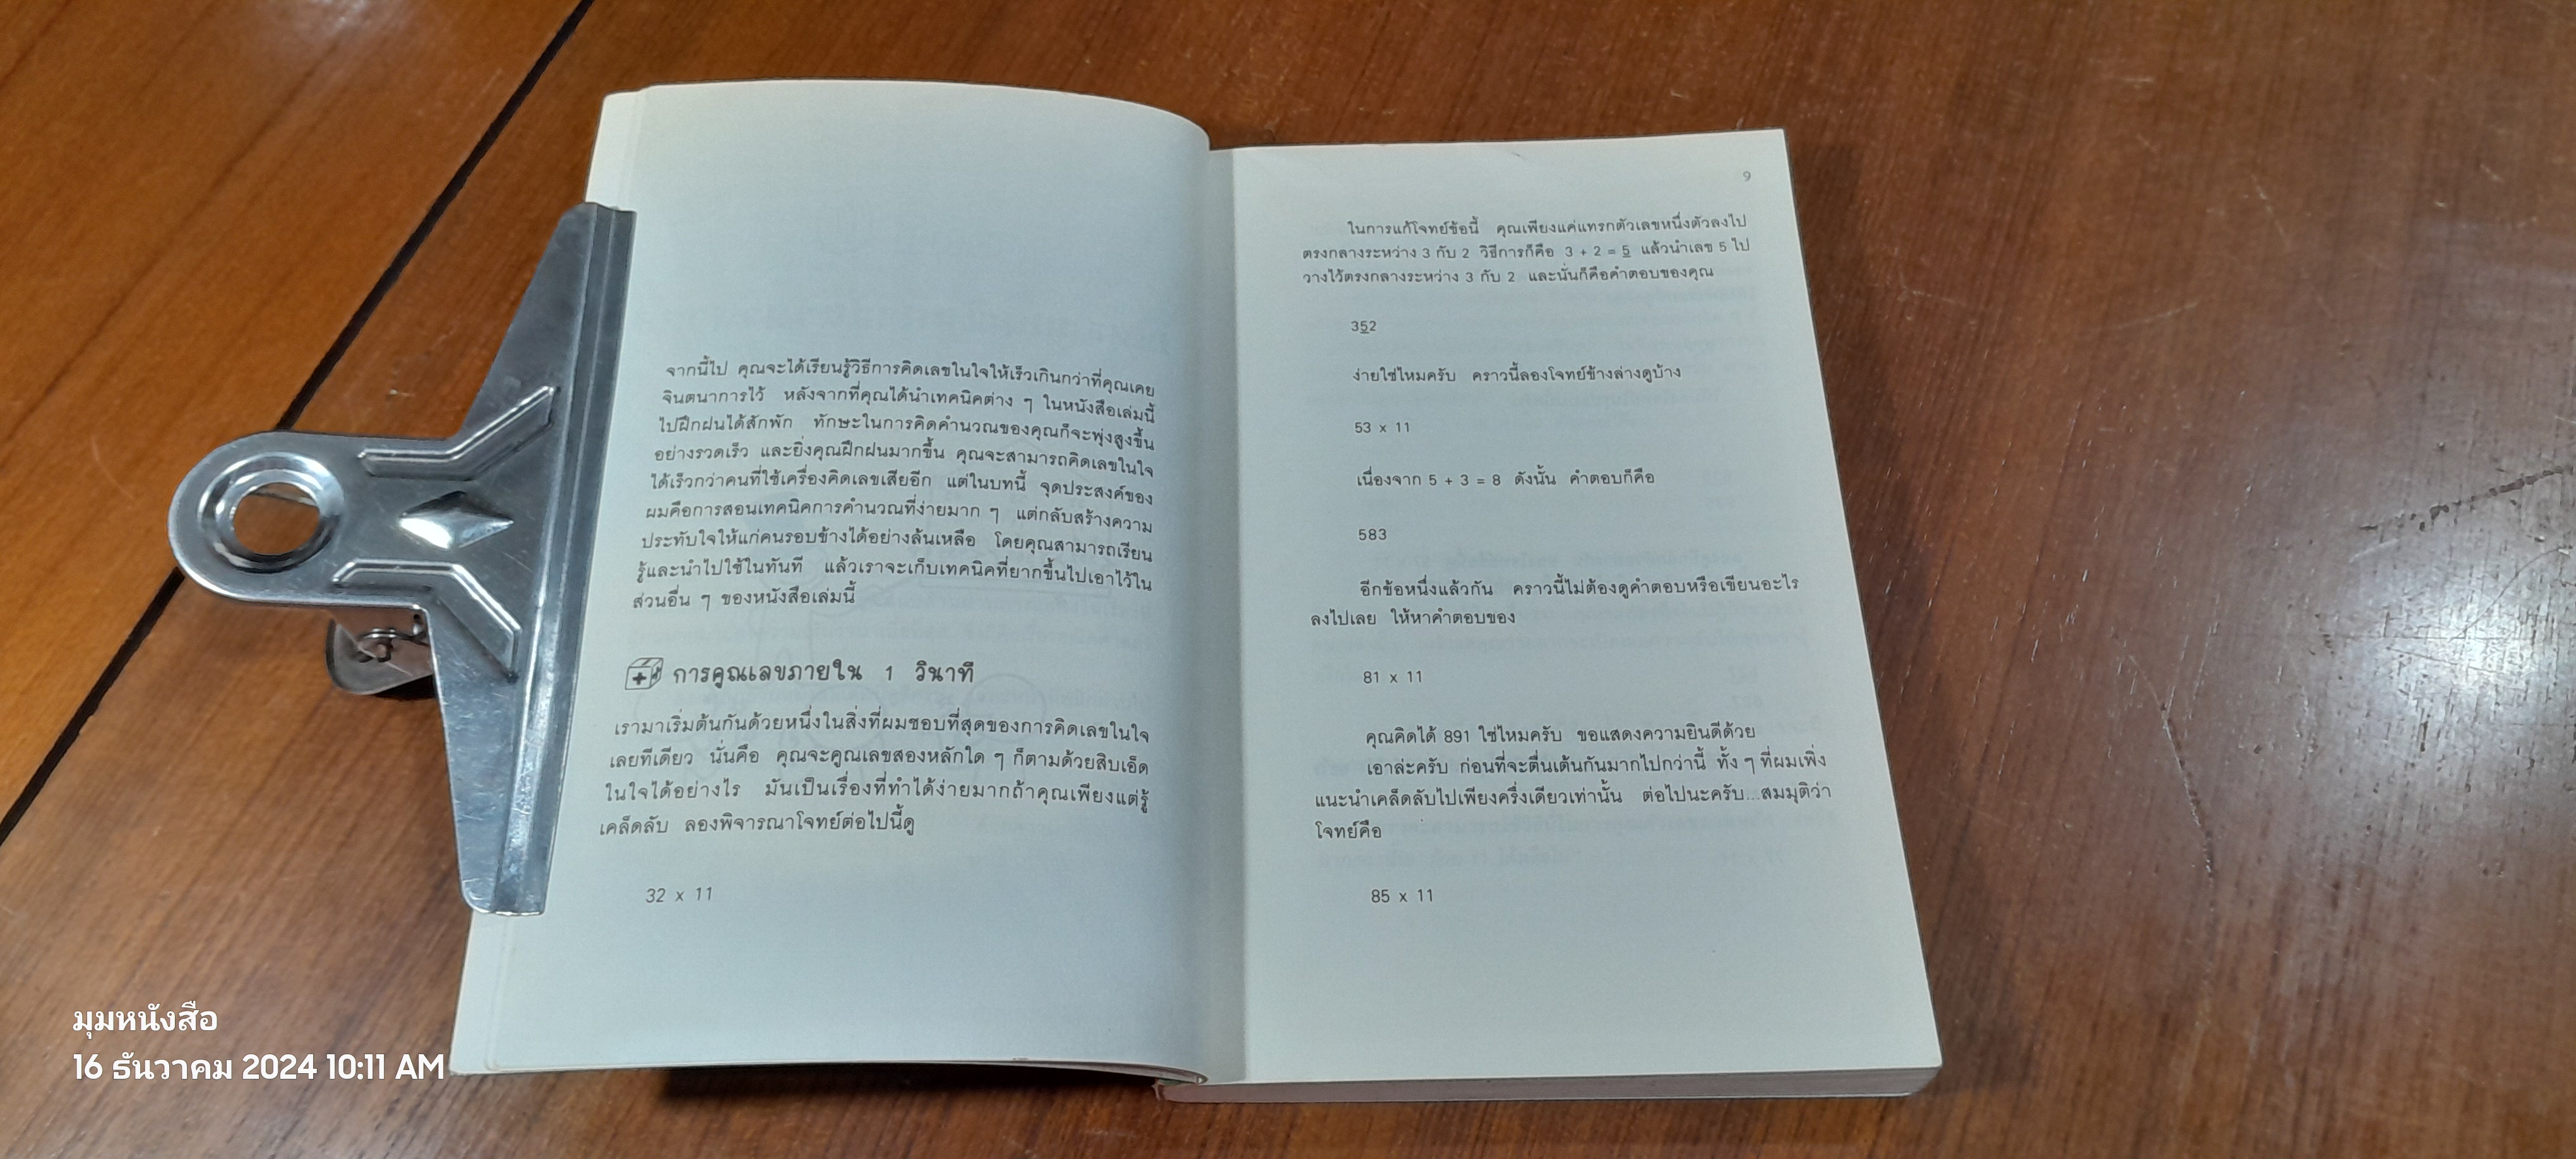 จากนี้ไป คุณจะได้เรียนรู้วิธีการคิดเลขในใจให้เร็วเกินกว่าที่คุณเคย
จินตนาการไว้ หลังจากที่คุณได้นำเทคนิคต่าง ๆ ในหนังสือเล่มนี้
ไปฝึกฝนได้สักพัก ทักษะในการคิดคำนวณของคุณก็จะพุ่งสูงขึ้น
อย่างรวดเร็ว และยิ่งคุณฝึกฝนมากขึ้น คุณจะสามารถคิดเลขในใจ
ได้เร็วกว่าคนที่ใช้เครื่องคิดเลขเสียอีก แต่ในบทนี้ จุดประสงค์ของ
ผมคือการสอนเทคนิคการคำนวณที่ง่ายมาก ๆ แต่กลับสร้างความ
ประทับใจให้แก่คนรอบข้างได้อย่างล้นเหลือ โดยคุณสามารถเรียน
รู้และนำไปใช้ในทันที แล้วเราจะเก็บเทคนิคที่ยากขึ้นไปเอาไว้ใน
ส่วนอื่น ๆ ของหนังสือเล่มนี้
การคูณเลขภายใน 1 วินาที
เรามาเริ่มต้นกันด้วยหนึ่งในสิ่งที่ผมชอบที่สุดของการคิดเลขในใจ
เลยทีเดียว นั่นคือ คุณจะคูณเลขสองหลักใด ๆ ก็ตามด้วยสิบเอ็ด
ในใจได้อย่างไร มันเป็นเรื่องที่ทำได้ง่ายมากถ้าคุณเพียงแต่รู้
เคล็ดลับ ลองพิจารณาโจทย์ต่อไปนี้ดู
32 x 11
9
ในการแก้โจทย์ข้อนี้ คุณเพียงแค่แทรกตัวเลขหนึ่งตัวลงไป
ตรงกลางระหว่าง 3 กับ 2 วิธีการก็คือ 3 + 2 = 5 แล้วนำเลข 5 ไป
วางไว้ตรงกลางระหว่าง 3 กับ 2 และนั่นก็คือคำตอบของคุณ
352
ง่ายใช่ไหมครับ คราวนี้ลองโจทย์ข้างล่างดูบ้าง
53 x 11
เนื่องจาก 5 + 3 = 8 ดังนั้น คำตอบก็คือ
583
อีกข้อหนึ่งแล้วกัน คราวนี้ไม่ต้องดูคำตอบหรือเขียนอะไร
ลงไปเลย ให้หาคำตอบของ
81 x 11
คุณคิดได้ 891 ใช่ไหมครับ ขอแสดงความยินดีด้วย
เอาล่ะครับ ก่อนที่จะตื่นเต้นกันมากไปกว่านี้ ทั้ง ๆ ที่ผมเพิ่ง
แนะนำเคล็ดลับไปเพียงครึ่งเดียวเท่านั้น ต่อไปนะครับ...สมมุติว่า
โจทย์คือ
85 x 11
มุมหนังสือ
16 ธันวาคม 2024 10:11 AM